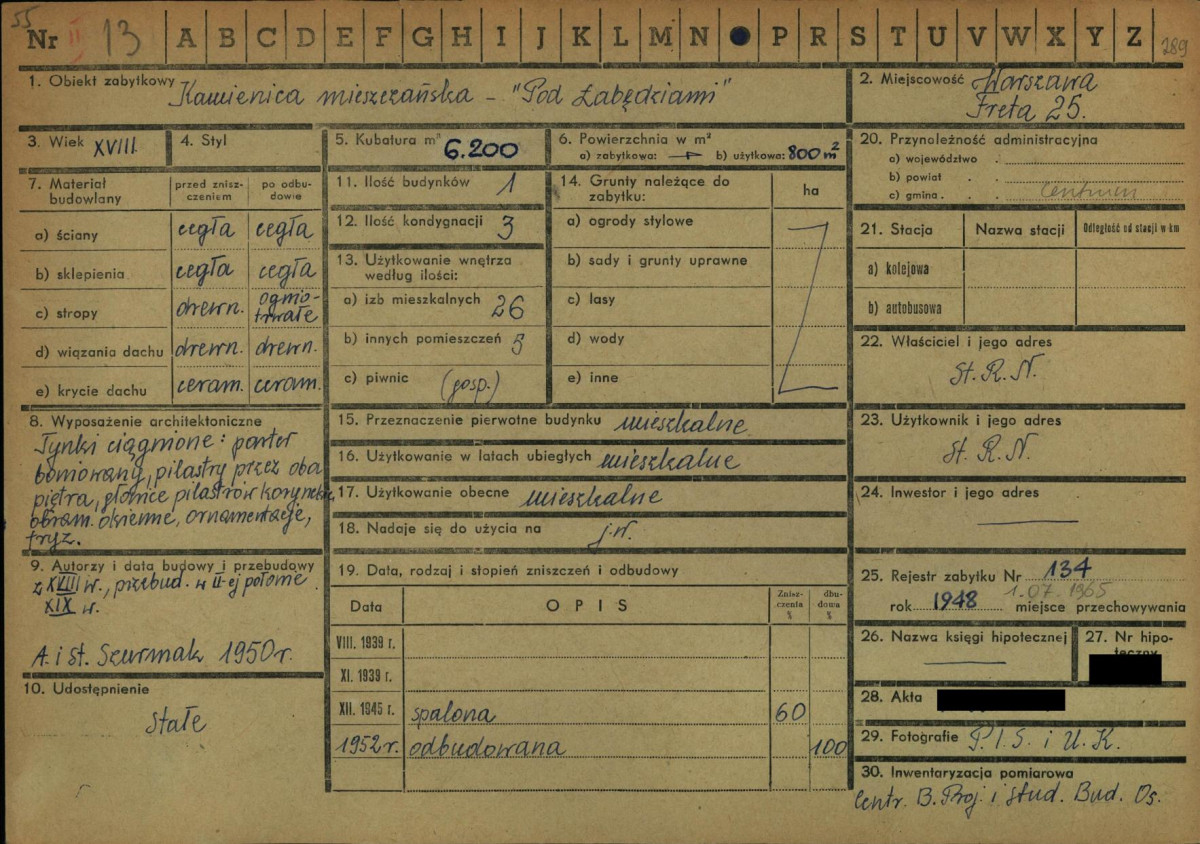 55
Nr II 13 A B C D E F G H I J K L M N P R S T U V W X Y Z 289
1. Obiekt zabytkowy Kamienica mieszczańska - "Pod Łabędziami"
2. Miejscowość Warszawa
Freta 25.
3. Wiek XVIII.
4. Styl
5. Kubatura m³ 6.200
6. Powierzchnia w m²
a) zabytkowa: — b) użytkowa: 800 m²
7. Materiał budowlany
przed zniszczeniem
po odbudowie
a) ściany cegła cegła
b) sklepienia cegła cegła
c) stropy drewn. ogniotrwałe
d) wiązania dachu drewn. drewn.
e) krycie dachu ceram. ceram.
8. Wyposażenie architektoniczne
Tynki ciągnione: parter
boniowany, pilastry przez oba
piętra, głowice pilastrów korynckie,
obram. okienne, ornamentacje,
fryz.
9. Autorzy i data budowy i przebudowy
z XVIII w., przebud. w II-ej połowie
XIX w.
A. i St. Szurmak 1950 r.
10. Udostępnienie
stałe
11. Ilość budynków 1
12. Ilość kondygnacji 3
13. Użytkowanie wnętrza
według ilości:
a) izb mieszkalnych 26
b) innych pomieszczeń 3
c) piwnic (gosp.)
14. Grunty należące do
zabytku:
ha
a) ogrody stylowe
b) sady i grunty uprawne
c) lasy
d) wody
e) inne
15. Przeznaczenie pierwotne budynku mieszkalne
16. Użytkowanie w latach ubiegłych mieszkalne
17. Użytkowanie obecne mieszkalne
18. Nadaje się do użycia na j.w.
19. Data, rodzaj i stopień zniszczeń i odbudowy
Data OPIS Zniszczenia % dbudowa %
VIII. 1939 r.
XI. 1939 r.
XII. 1945 r. spalona 60
1952 r. odbudowana 100
20. Przynoleżność administracyjna
a) województwo
b) powiat
c) gmina Centrum
21. Stacja Nazwa stacji Odległość od stacji w km
a) kolejowa
b) autobusowa
22. Właściciel i jego adres
St. R. N.
23. Użytkownik i jego adres
St. R. N.
24. Inwestor i jego adres
25. Rejestr zabytku Nr 134
1.07.1965
rok 1948 miejsce przechowywania
26. Nazwa księgi hipotecznej
27. Nr hipoteczny
28. Akta
29. Fotografie P. I. S. i U. K.
30. Inwentaryzacja pomiarowa
Centr. B. Proj. i Stud. Bud. Os.